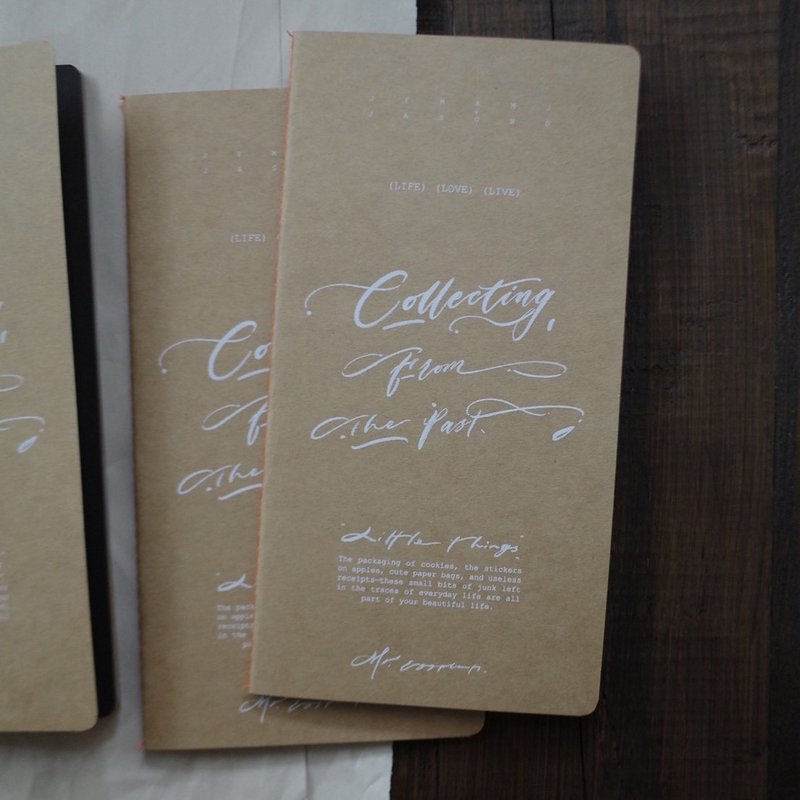 J F M A M J
J A S O N D
(LIFE) (LOVE) (LIVE)
Collecting
from
the Past.
"Little things"
The packaging of cookies, the stickers
on apples, cute paper bags, and useless
receipts—these small bits of junk left
in the traces of everyday life are all
part of your beautiful life.
Mr.
J F M
J A S
(LIFE)
Co
f
the
"L
The pack
on apple
receipts
in the
Mr.